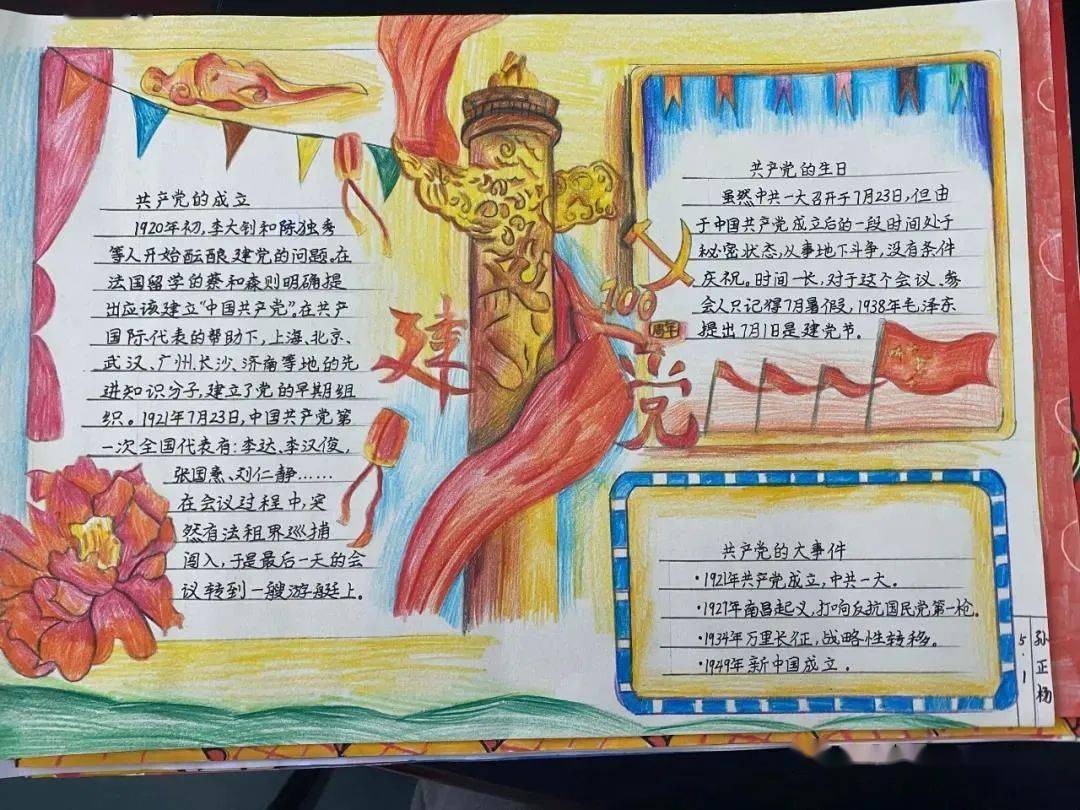 共产党的成立
1920年初，李大钊和陈独秀
等人开始酝酿建党的问题。在
法国留学的蔡和森则明确提
出应该建立“中国共产党”。在共产
国际代表的帮助下，上海、北京、
武汉、广州、长沙、济南等地的先
进知识分子，建立了党的早期组
织。1921年7月23日，中国共产党第
一次全国代表有：李达、李汉俊，
张国焘、刘仁静……
在会议过程中，突
然有法租界巡捕
闯入，于是最后一天的会
议转到一艘游艇上。
建
100
周年
党
共产党的生日
虽然中共一大召开于7月23日，但由
于中国共产党成立后的一段时间处于
秘密状态，从事地下斗争，没有条件
庆祝。时间一长，对于这个会议、参
会人只记得7月暑假，1938年毛泽东
提出7月1日是建党节。
共产党的大事件
·1921年共产党成立，中共一大。
·1927年南昌起义，打响反抗国民党第一枪。
·1934年万里长征，战略性转移。
·1949年新中国成立。
5.1
孙正杨